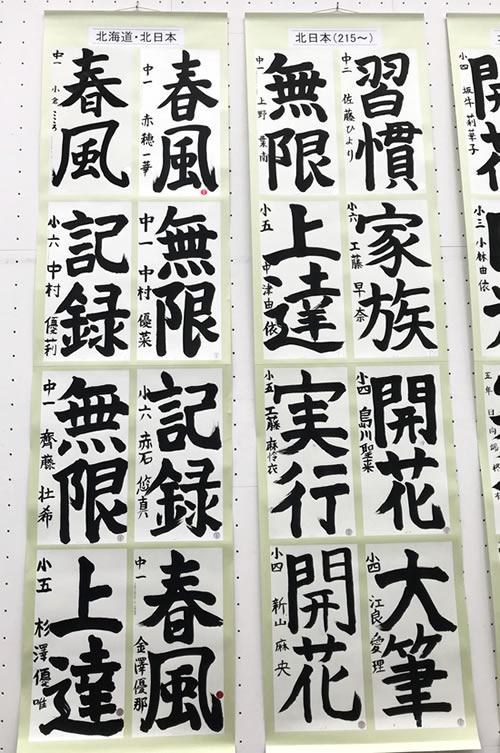 北海道・北日本
春風
中一 赤穂一華
春風
中一 小倉こころ
無限
中一 中村優菜
記録
小六 中村優莉
記録
小六 赤石悠真
無限
中一 齊藤壮希
春風
中一 金澤優那
上達
小五 杉澤優唯
北日本(215～)
習慣
中二 佐藤ひより
無限
中一 上野葉南
家族
小六 工藤早奈
上達
小五 中津由依
開花
小四 島川聖来
実行
小五 工藤麻怜衣
大筆
小四 江良愛理
開花
小四 新山麻央
開花
小四 坂牛莉華子
小三 小林由依